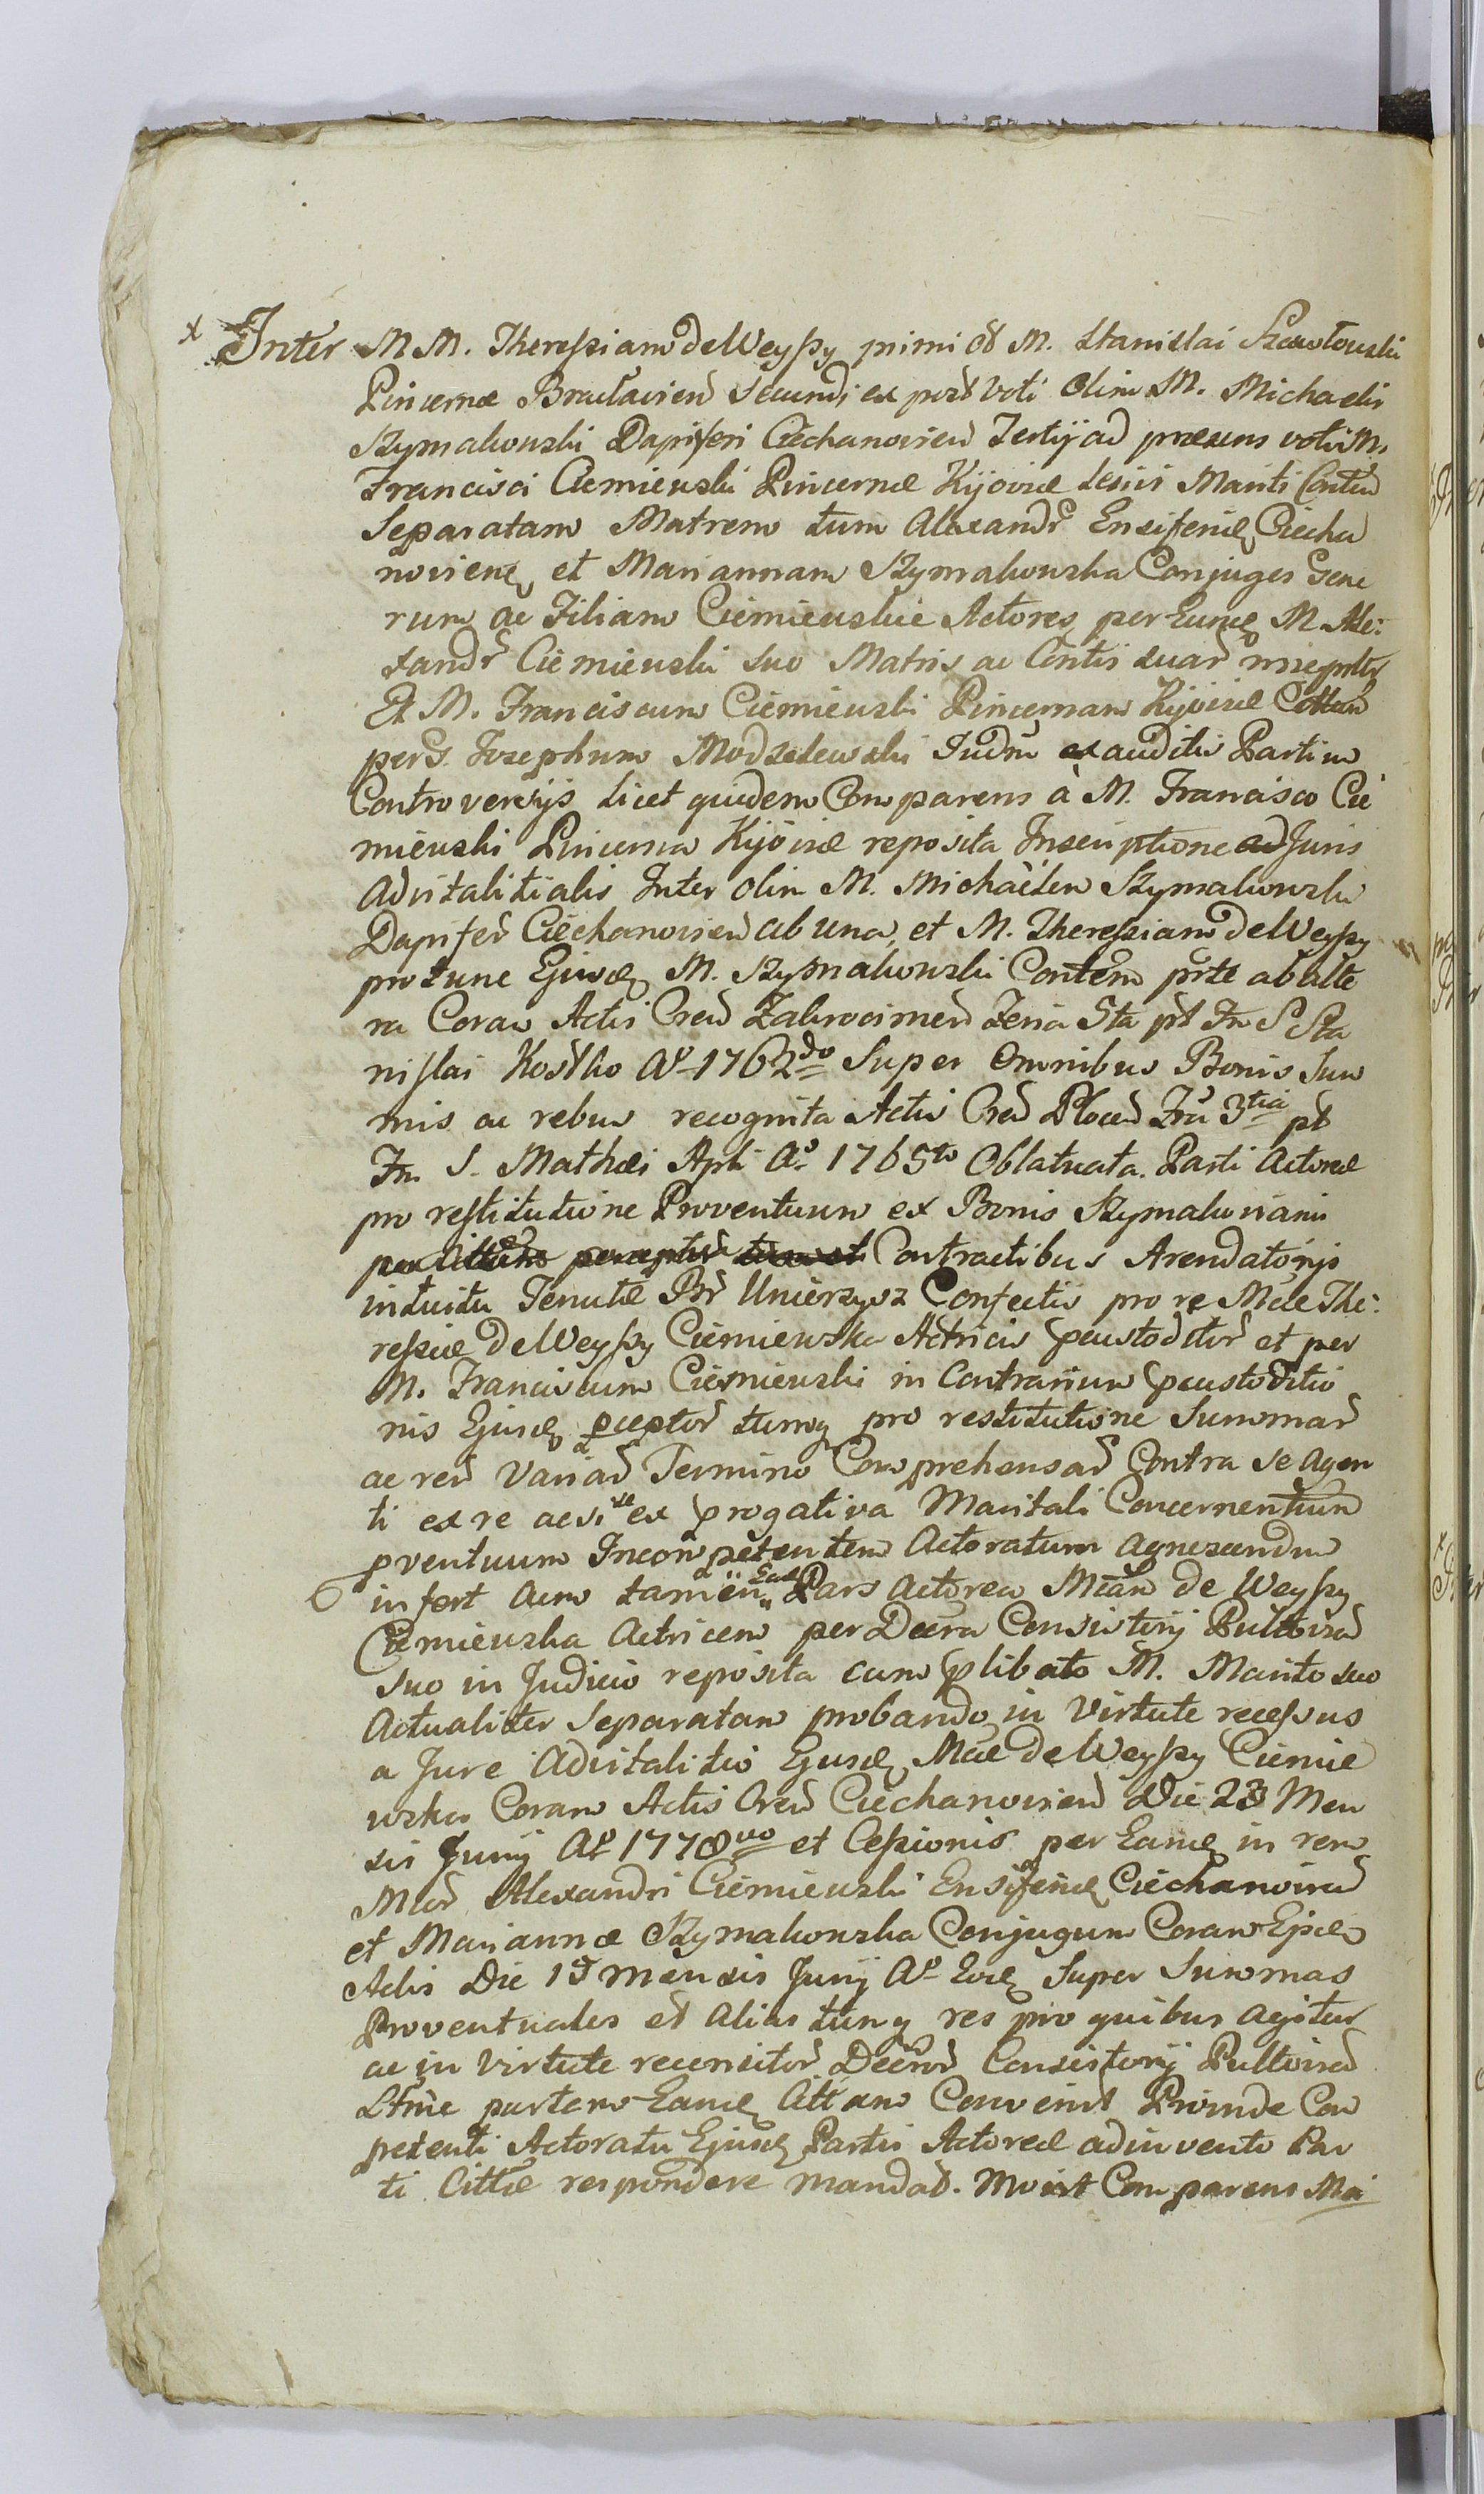 x Inter MM. Theressiam de Weyssy primi et M. Stanislai Szawłowski
Pincernæ Bracłavien secundi ex post voti olim M. Michaelis
Szymakowski Dapiferi Ciechanovien Tertij ad præsens voti M.
Francisci Ciemiewski Pincernæ Kijoviæ secus Mariti Conten
Separatam Matrem tum Alexandr Ensiferid Ciecha
novien et Mariannam Szymakowska Conjuges Gene
rum ac Filiam Ciemiewskie Actores per Eund M. Ale:
xandr Ciemiewski suo Matris ac Contis suar nnie
Et M. Franciscum Ciemiewski Pincernam Kijoviæ Cittum
per G. Josephum Modzelewski Judm ex auditis Partium
Controversijs licet quidem Comparens à M. Francisco Cie
miewski Pincerna Kijoviæ reposita Inscriptione ad Juris
Advitalitialis Inter olim M. Michaëlem Szymakowski
Dapifer Ciechanovien ab una, et M. Theressiam de Weyssy
pro tunc Ejusd M. Szymakowski Contem prte ab alte
ra Coram Actis Cren Zakrocimen Feria 5ta pt Fm S Sta
nislai Kostka Ao 1762do Super Omnibus Bonis Sum
mis ac rebus recognita Actis Cren Plocen Fria 3tia pt
Fm. S. Mathæi Apli Ao 1765to Oblatuata. Parti Actoreæ
pro restitutione Proventuum ex Bonis Szymakovianis
per Cittum perceptor Contractibus Arendatorijs
intuitu Tenutæ Br Unierzysz Confectis pro re Mcæ The:
ressiæ de Weyssy Ciemiewska Actricis pcustoditor et per
M. Franciscum Ciemiewski in Contrarium pcustoditio
nis Ejusd pceptor tumq pro restitutione Summar
ac rer Variar Termino Comprehensar Contra se agen
ti ex re ac si se ex progativa Maritali Concernentium
pventuum Incompetentem Actoratum agnoscendum
infert Acm tamen Ead Pars Actorea Mcam de Weyssy
Ciemiewska Actricem per Decra Consistorij Pultovien
suo in Judicio reposita cum plibato M. Marito suo
Actualiter Separatam probando, in Virtute recessus
a Jure Advitalitio Ejusd Mcæ de Weyssy Ciemie
wska Coram Actis Cren Ciechanovien Die 23 Men
sis Junij Ao 1778vo et Cessionis per Eand in rem
Mcor Alexandri Ciemiewski Ensiferid Ciechanovien
et Mariannæ Szymakowska Conjugum Coram Ejsd
Actis Die 15 mensis Junij Ao Eod Super Summas
Proventuales et alias tumq res pro quibus agitur
ac in Virtute recensitor Decror Consistorij Pultovien
Ltime partem Eand Cittam Convenit Proinde Com
petenti Actoratu Ejusd Partis Actoreæ adinvento Par
ti Cittæ respondere mandat. Movit Comparens Ma